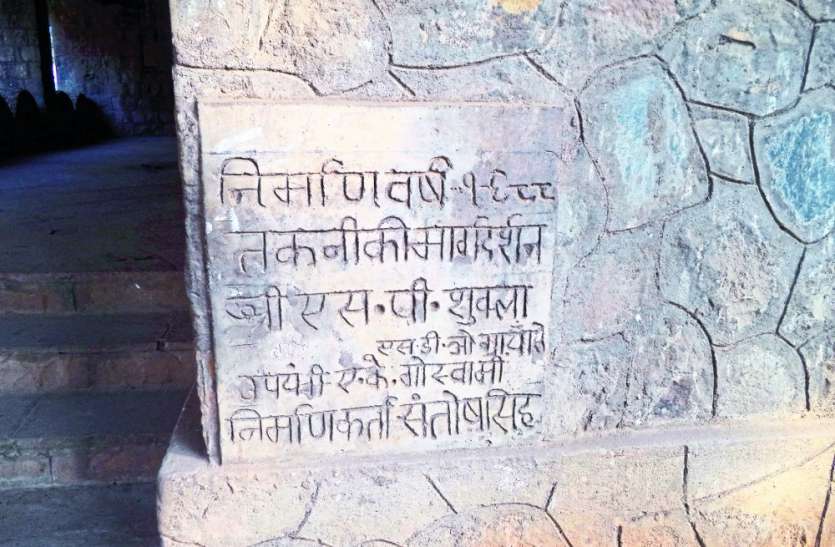 निर्माण वर्ष-१९८८
तकनीकी मार्गदर्शन
श्री एस.पी.शुक्ला
एस.डी.ओ
उपयंत्री-ए.के.गोस्वामी
निर्माणकर्ता संतोषसिंह